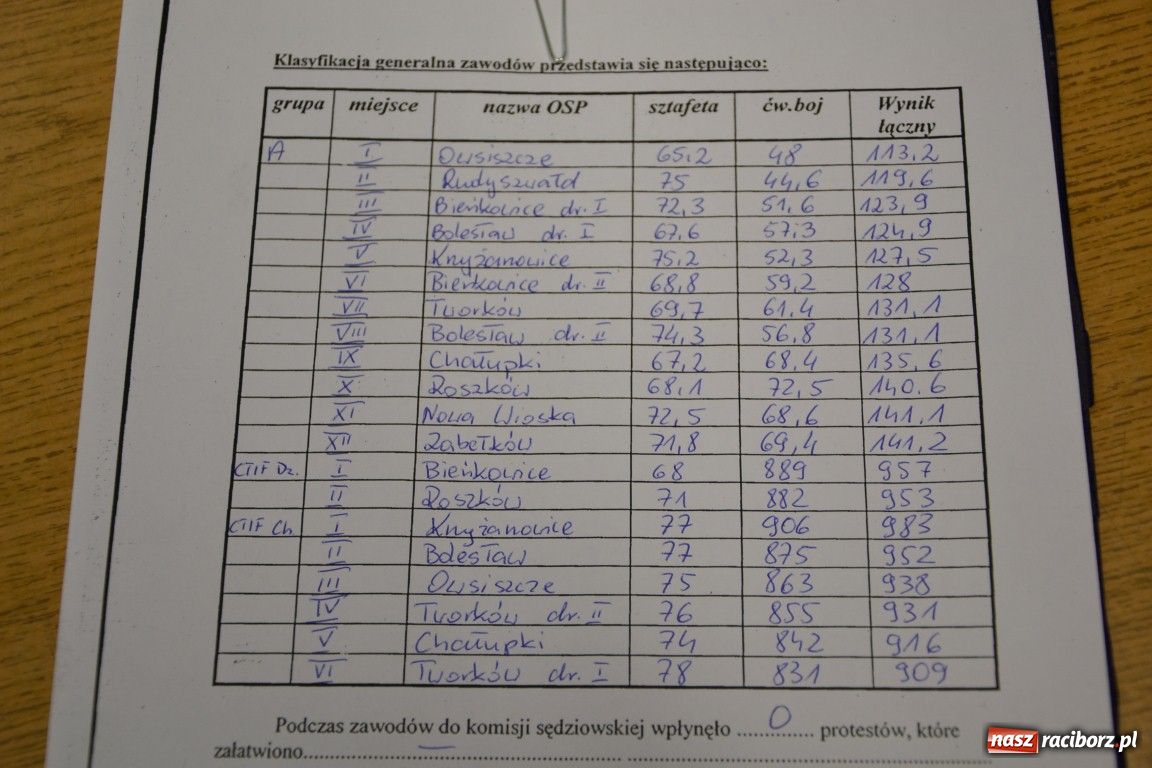 Klasyfikacja generalna zawodów przedstawia się następująco:
grupa miejsce nazwa OSP sztafeta ćw.boj Wynik łączny
A I Owsiszcze 65,2 48 113,2
II Rudyszwałd 75 44,6 119,6
III Bieńkowice dr. I 72,3 51,6 123,9
IV Bolesław dr. I 67,6 57,3 124,9
V Krzyżanowice 75,2 52,3 127,5
VI Bieńkowice dr. II 68,8 59,2 128
VII Tworków 69,7 61,4 131,1
VIII Bolesław dr. II 74,3 56,8 131,1
IX Chałupki 67,2 68,4 135,6
X Roszków 68,1 72,5 140.6
XI Nowa Wioska 72,5 68,6 141,1
XII Zabełków 71,8 69,4 141,2
CTIF Dz. I Bieńkowice 68 889 957
II Roszków 71 882 953
CTIF Ch I Krzyżanowice 77 906 983
II Bolesław 77 875 952
III Owsiszcze 75 863 938
IV Tworków dr. II 76 855 931
V Chałupki 74 842 916
VI Tworków dr. I 78 831 909
Podczas zawodów do komisji sędziowskiej wpłynęło ......0...... protestów, które
załatwiono.......–.......
nasz raciborz.pl